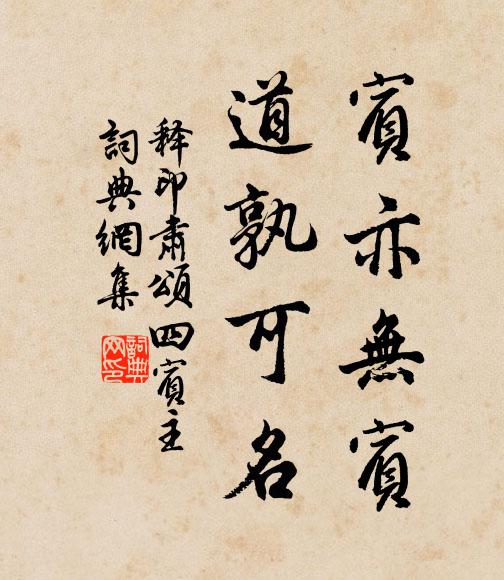 賓亦無賓
道孰可名
释印肅頌四賓主
詞典網集
詞典網印